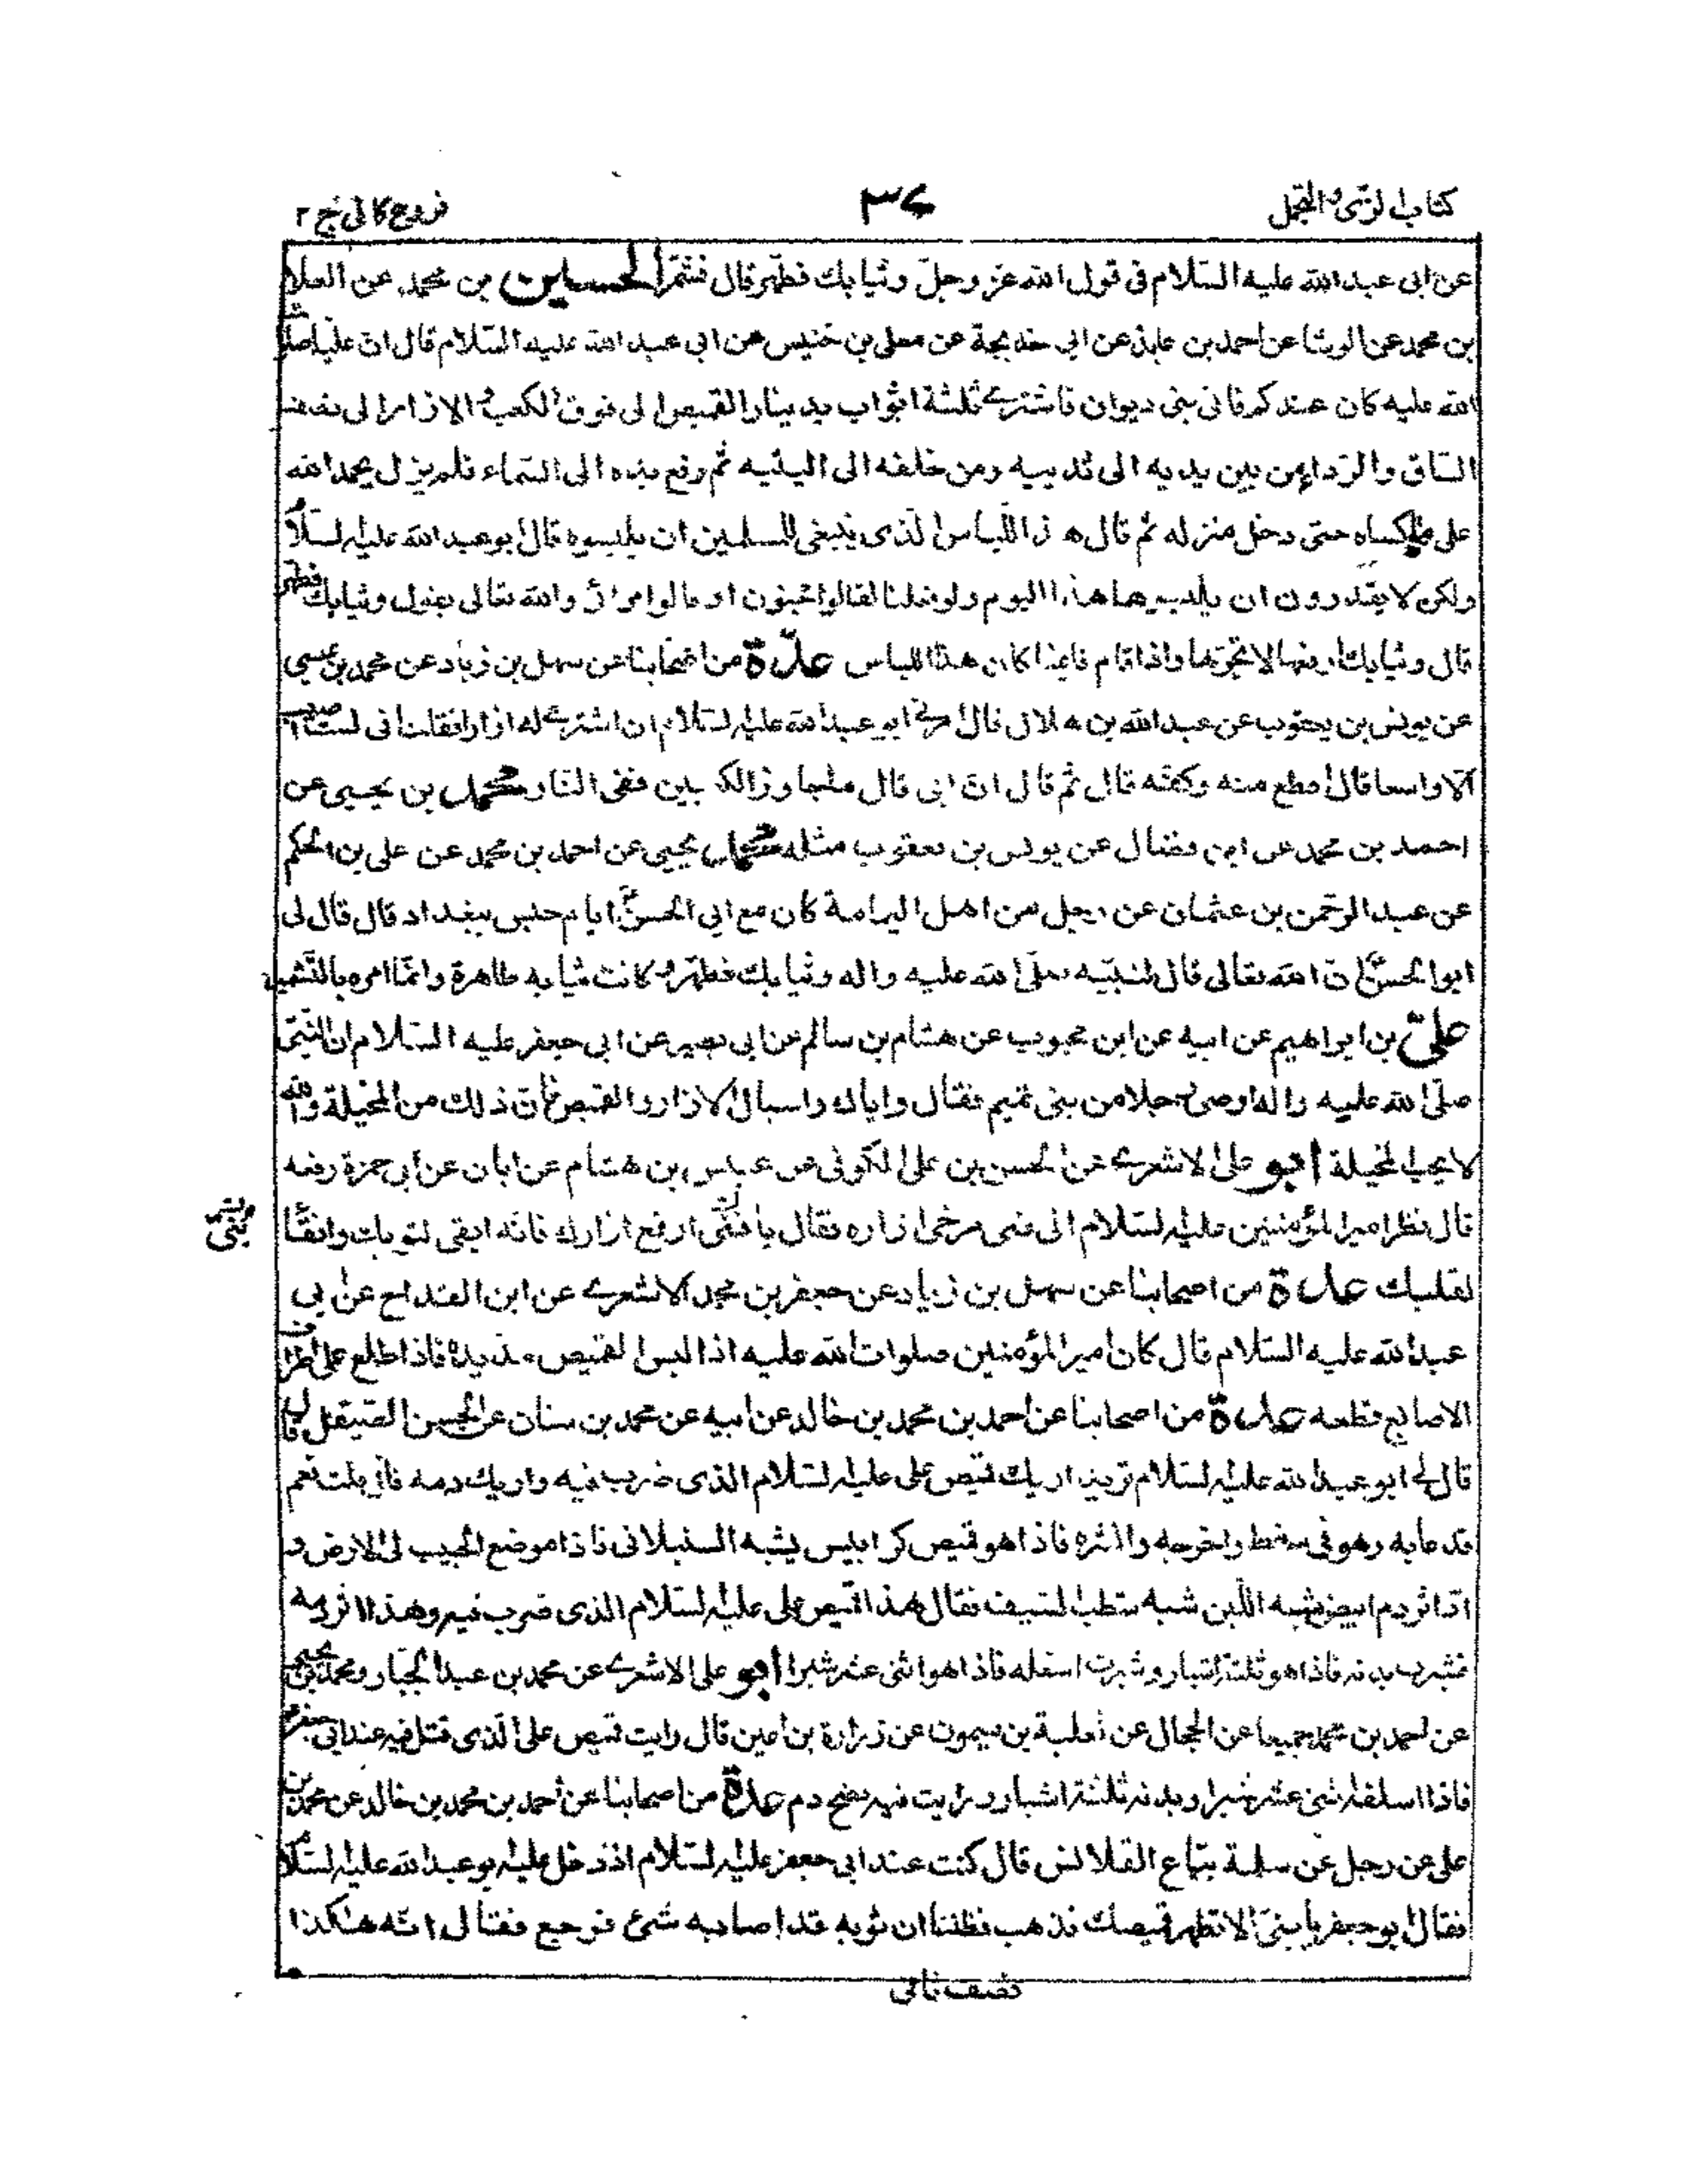 كتاب الزى والتجمل
٣٤
فروع كافى ج ٢
عن ابى عبد الله عليه السّلام فى قول الله عزّ وجلّ وثيابك فطهّر قال فشمّر الحسين بن محمد عن
بن محمد عن الوشا عن احمد بن عايذ عن ابى خديجة عن معلى بن خنيس عن ابى عبد الله عليه السّلام قال ان عليا صلوات
الله عليه كان عندكم فاتى بنى ديوان فاشترى ثلثة اثواب بدينار القميص الى فوق الكعب والازار الى نصف
السّاق والرّداء من بين يديه الى ثدييه ومن خلفه الى اليتيه ثم رفع يده الى السّماء فلم يزل يحمد الله
على ما كساه حتى دخل منزله ثم قال هذا اللّباس الّذى ينبغى للمسلمين ان يلبسوه قال ابو عبد الله عليه السّلام
ولكن لا يقدرون ان يلبسوا هذا اليوم ولو فعلنا لقالوا مجنون او قالوا مراىٍ والله تعالى يقول وثيابك فطهر
قال وثيابك ارفعها لا تجرّها واذا قام قائمنا كان هذا اللباس عدّة من اصحابنا عن سهل بن زياد عن محمد بن عيسى
عن يونس بن يعقوب عن عبد الله بن هلال قال امرنى ابو عبد الله عليه السّلام ان اشترى له ازارا فقلت انى لست اصيب
الّا واسعا قال اقطع منه وكفّه قال ثم قال انّ ابى قال ما جاوز الكعبين ففى النّار محمد بن يحيى عن
احمد بن محمد عن ابن فضال عن يونس بن يعقوب مثله محمد بن يحيى عن احمد بن محمد عن على بن الحكم
عن عبد الرّحمن بن عثمان عن رجل من اهل اليمامة كان مع ابى الحسن ايام حبس ببغداد قال قال لى
ابو الحسن انّ الله تعالى قال لنبيّه صلّى الله عليه واله وثيابك فطهّر وكانت ثيابه طاهرة وانّما امره بالتّشمير
علىّ بن ابراهيم عن ابيه عن ابن محبوب عن هشام بن سالم عن ابى بصير عن ابى جعفر عليه السّلام ان النّبىّ
صلّى الله عليه واله اوصى رجلا من بنى تميم فقال واياك واسبال الازار والقميص فان ذلك من المخيلة والله
لا يحب المخيلة ابو على الاشعرى عن الحسن بن على الكوفى عن عبيس بن هشام عن ابان عن ابى حمزة رفعه
قال نظر امير المؤمنين عليه السّلام الى فتى مرخى ازاره فقال يا فتى ارفع ازارك فانّه ابقى لثوبك وانقى
بنى
لقلبك عدة من اصحابنا عن سهل بن زياد عن جعفر بن محمد الاشعرى عن ابن القداح عن ابى
عبد الله عليه السّلام قال كان امير المؤمنين صلوات الله عليه اذا لبس القميص مدّ يده فاذا طلع على اطراف
الاصابع قطعه عدة من اصحابنا عن احمد بن محمد بن خالد عن ابيه عن محمد بن سنان عن الحسن الصّيقل قال
قال لى ابو عبد الله عليه السّلام تريد اريك قميص على عليه السّلام الذى ضرب فيه واريك دمه قال قلت نعم
فدعا به وهو فى سفط واخرجه ونشره فاذا هو قميص كرابيس يشبه السنبلانى فاذا موضع الجيب الى الارض و
اذا اثر دم ابيض شبه اللّبن شبه شطب السّيف فقال هذا قميص على عليه السّلام الذى ضرب فيه وهذا اثر دمه
فشبرت بدنه فاذا هو ثلثة اشبار وشبرت اسفله فاذا هو اثنى عشر شبرا ابو على الاشعرى عن محمد بن عبد الجبّار ومحمد بن يحيى
عن احمد بن محمد جميعا عن الحجال عن ثعلبة بن ميمون عن زرارة بن اعين قال رايت قميص على الّذى قتل فيه عند ابى جعفر
فاذا اسفله اثنى عشر شبرا وبدنه ثلثة اشبار ورايت فيه نضح دم عدة من اصحابنا عن احمد بن محمد بن خالد عن محمد بن
على عن رجل عن سلمة بيّاع القلانس قال كنت عند ابى جعفر عليه السّلام اذ دخل عليه ابو عبد الله عليه السّلام
فقال ابو جعفر يا بنىّ الا تطهر قميصك فذهب فظننا ان ثوبه قد اصابه شىء فرجع فقال انّه هكذا
نصف ثانى